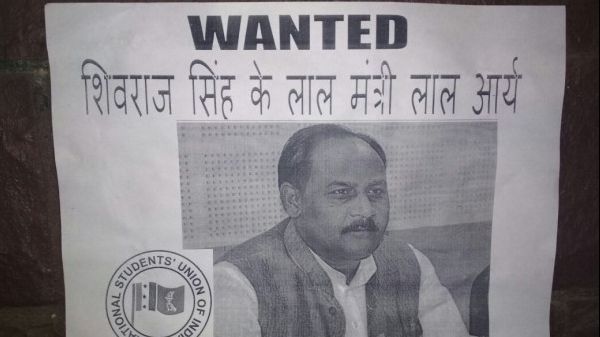 WANTED
शिवराज सिंह के लाल मंत्री लाल आर्य
NATIONAL STUDENTS' UNION OF INDIA